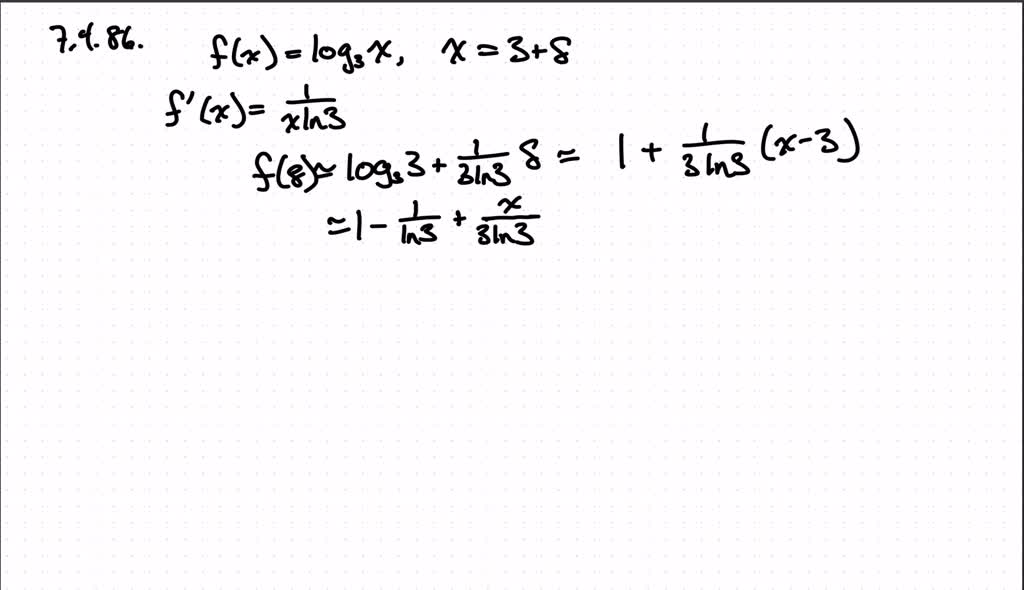 7.4.86. f(x) = log₃x, x = 3+δ
f'(x) = 1/(x ln3)
f(δ) ≈ log₃3 + 1/(3ln3) δ ≈ 1 + 1/(3ln3) (x-3)
≈ 1 - 1/ln3 + x/(3ln3)